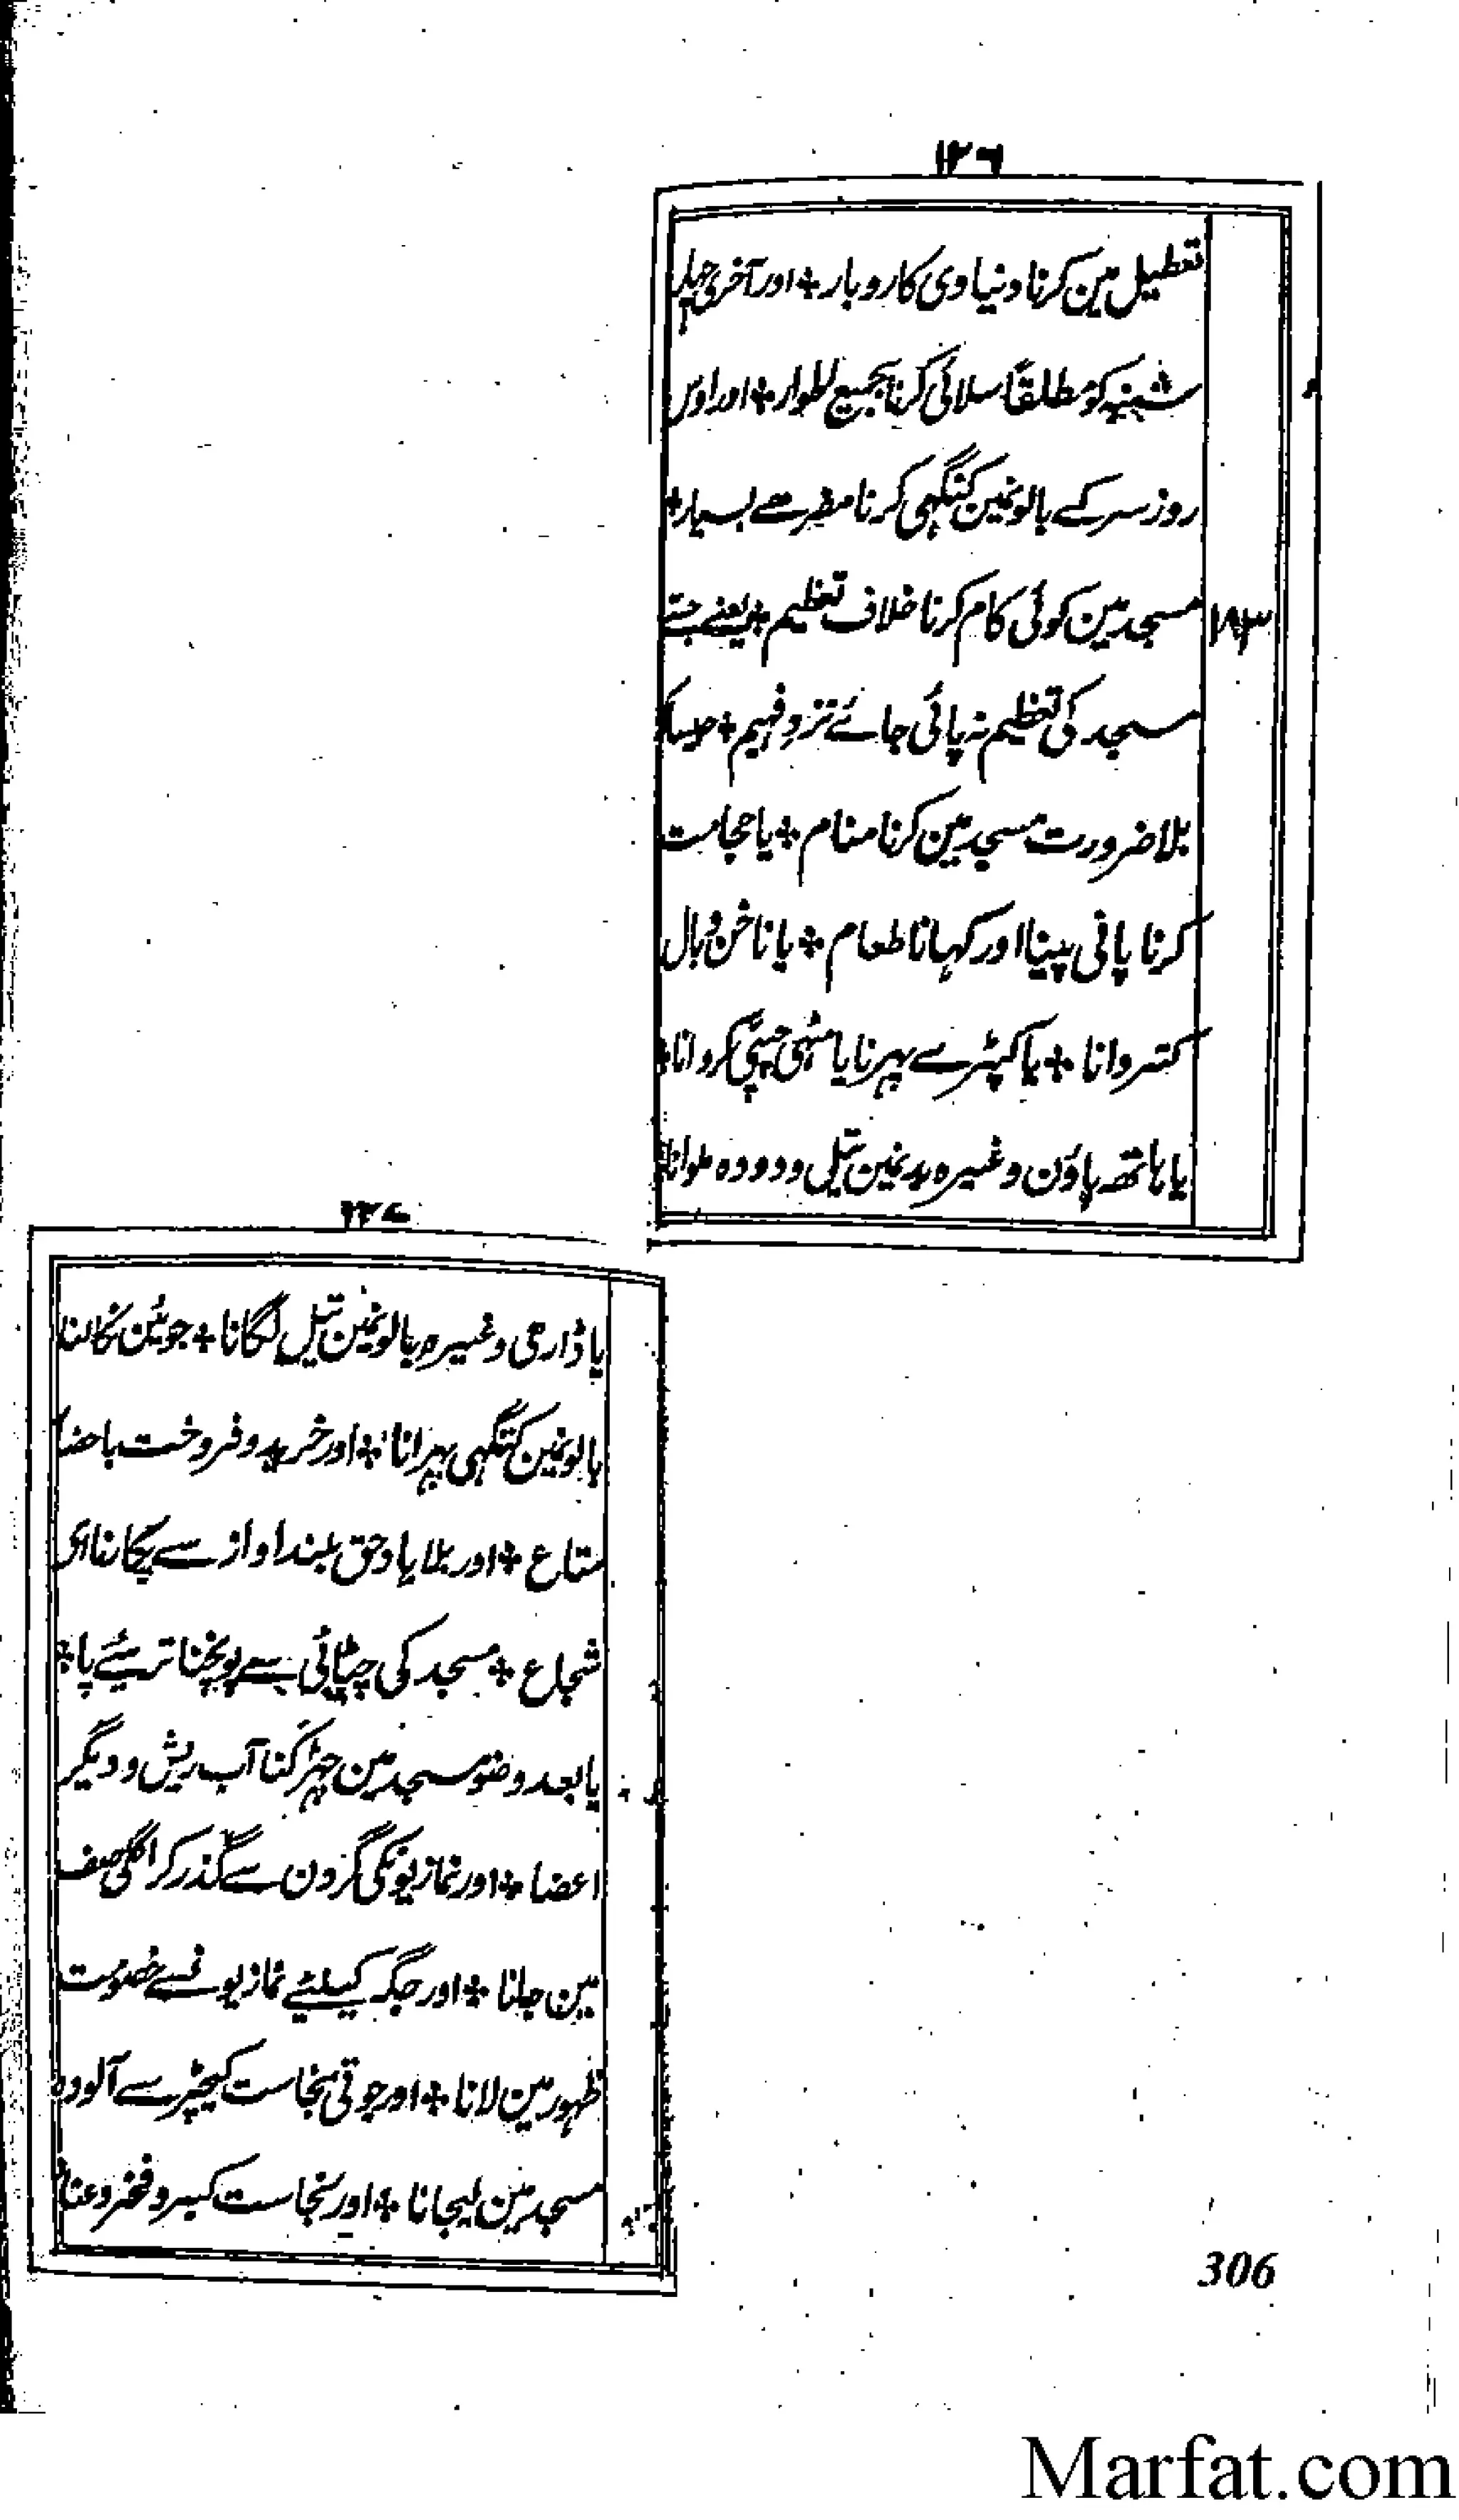 ١٢٦
تعطیل مین کرنا دنیاوی کاروبار + اور آخری چہار
شنبہ کو مطلقاً سلائی کرنا بجمیع اطوار + اور اوس
روز سر کے بالونمین کنگہی کرنا مضر ہے بسیار +
١٨٣
مسجد مین کوئی کام کرنا خلاف تعظیم + یعنے جسے
مسجد کی تعظیم نہ پائی جائے نزد فہیم + جیسا کہ
بلا ضرورت مسجد مین کرنا منام + یا حجامت
کرنا پانی پینا اور کہانا طعام + یا ناخن و بال
کتروانا + یا کپڑے پہرنا یا مٹہی چپی کروانا +
یا ہاتہہ پاؤن وغیرہ بدنمین تیل و دودہ ملوانا
١٢٧
یا ڈارہی وغیرہ بالونمین تیل لگانا + جوئین نکالنا
بالونمین کنگہی پہرانا + اور خرید و فروخت باحضار
متاع + اور بلا یاد حق بلند اواز سے پکارنا ای
شجاع + مسجد کی چٹائی سے پونچنا تریئے پا +
یا بعد وضو مسجد مین چہڑکنا آب ریش و دیگر
اعضا + اور نمازیونکی گردن سے گذر کر اگلی صف
مین جانا + اور جگہ کیلیئے نمازیونسے خصومت
ظہور مین لانا + اور جوتی نجاست کیچڑ سے آلودہ
مسجد مین لیجانا + اور نجاست کبر و فخر و عناد
306
Marfat.com